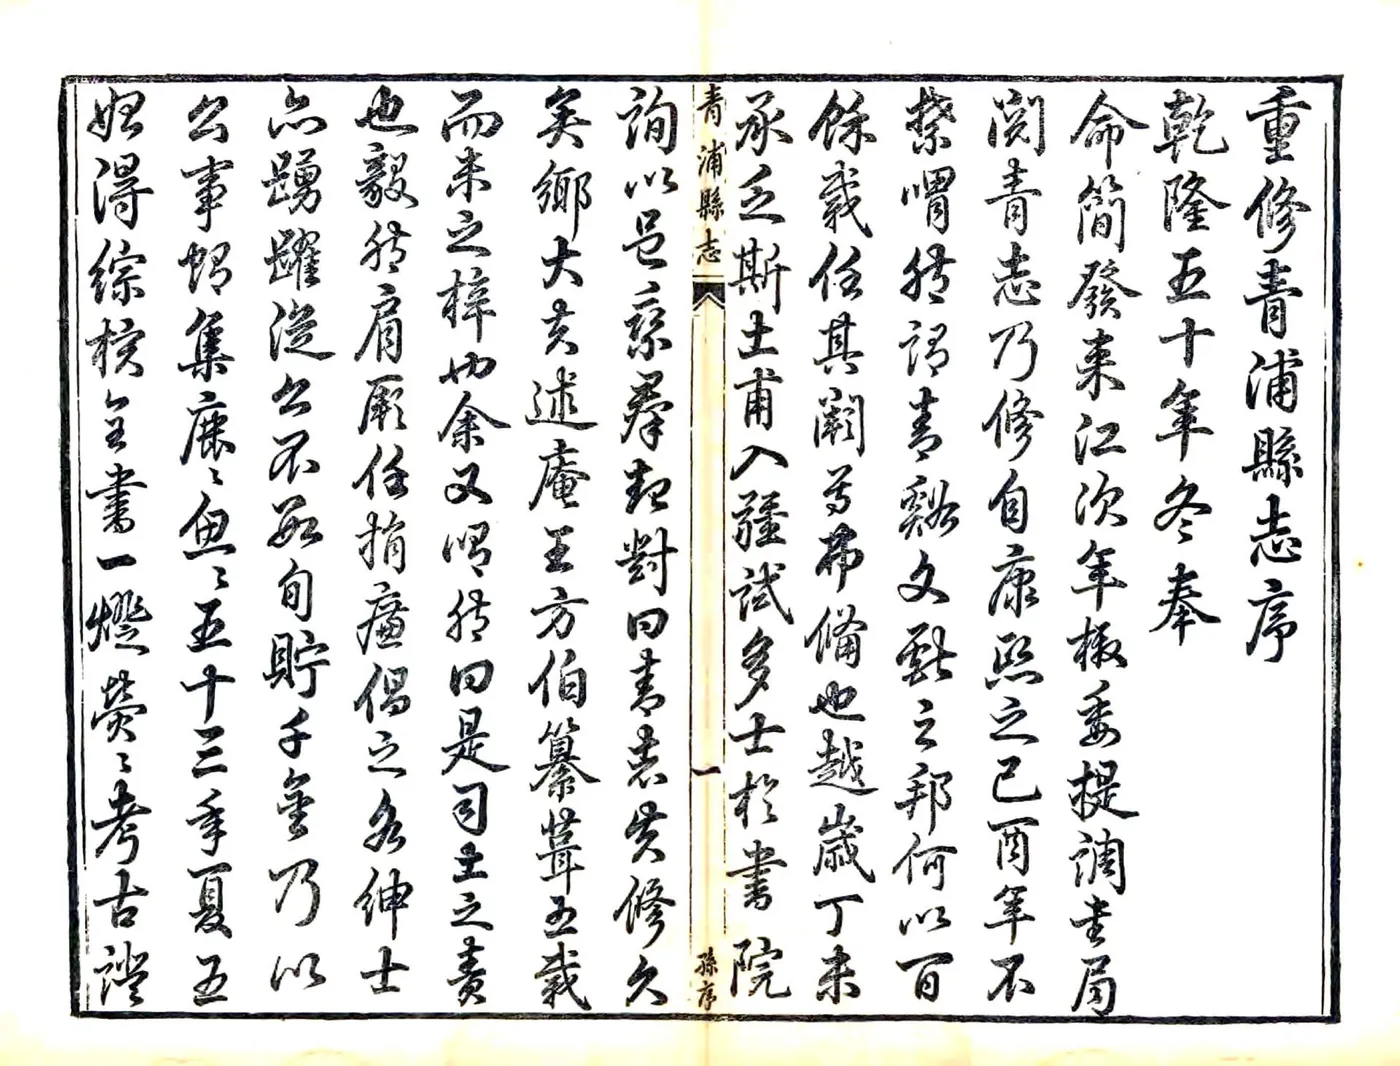 重修青浦縣志序
乾隆五十年冬奉
命簡發來江次年檄委提調書局
閱青志乃修自康熙之己酉年不
禁喟然謂青谿文獻之邦何以百
餘載任其闕焉弗備也越歲丁未
承乏斯土甫入疆試多士於書院
青浦縣志
一
孫序
詢以邑乘羣起對曰青志失修久
矣鄉大夫述庵王方伯纂葺五載
而未之梓也余又喟然曰是司土之責
也毅然肩厥任捐廉倡之名紳士
亦踴躍從公不數旬貯千金乃以
公事蝟集鹿鹿魚魚五十三年夏五
始得綜核全書一燈熒熒考古證